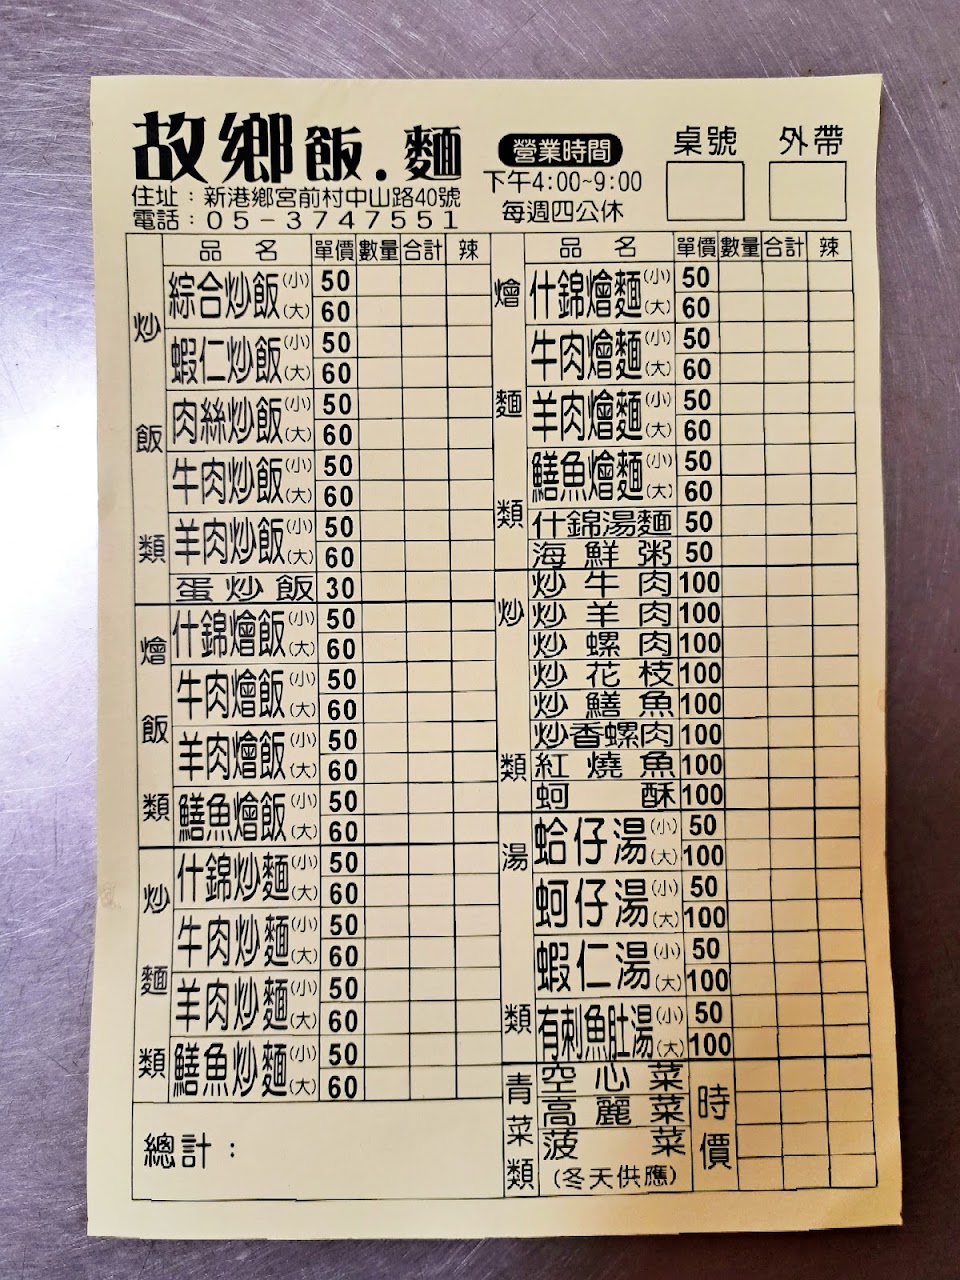 故鄉飯.麵
住址：新港鄉宮前村中山路40號
電話：05-3747551
營業時間
下午4:00~9:00
每週四公休
桌號
外帶
品名 單價 數量 合計 辣
炒飯類
綜合炒飯 (小) 50
(大) 60
蝦仁炒飯 (小) 50
(大) 60
肉絲炒飯 (小) 50
(大) 60
牛肉炒飯 (小) 50
(大) 60
羊肉炒飯 (小) 50
(大) 60
蛋炒飯 30
燴飯類
什錦燴飯 (小) 50
(大) 60
牛肉燴飯 (小) 50
(大) 60
羊肉燴飯 (小) 50
(大) 60
鱔魚燴飯 (小) 50
(大) 60
炒麵類
什錦炒麵 (小) 50
(大) 60
牛肉炒麵 (小) 50
(大) 60
羊肉炒麵 (小) 50
(大) 60
鱔魚炒麵 (小) 50
(大) 60
總計：
品名 單價 數量 合計 辣
燴麵類
什錦燴麵 (小) 50
(大) 60
牛肉燴麵 (小) 50
(大) 60
羊肉燴麵 (小) 50
(大) 60
鱔魚燴麵 (小) 50
(大) 60
什錦湯麵 50
海鮮粥 50
炒類
炒牛肉 100
炒羊肉 100
炒螺肉 100
炒花枝 100
炒鱔魚 100
炒香螺肉 100
紅燒魚 100
蚵酥 100
湯類
蛤仔湯 (小) 50
(大) 100
蚵仔湯 (小) 50
(大) 100
蝦仁湯 (小) 50
(大) 100
有刺魚肚湯 (小) 50
(大) 100
青菜類
空心菜
高麗菜
菠菜
(冬天供應)
時價